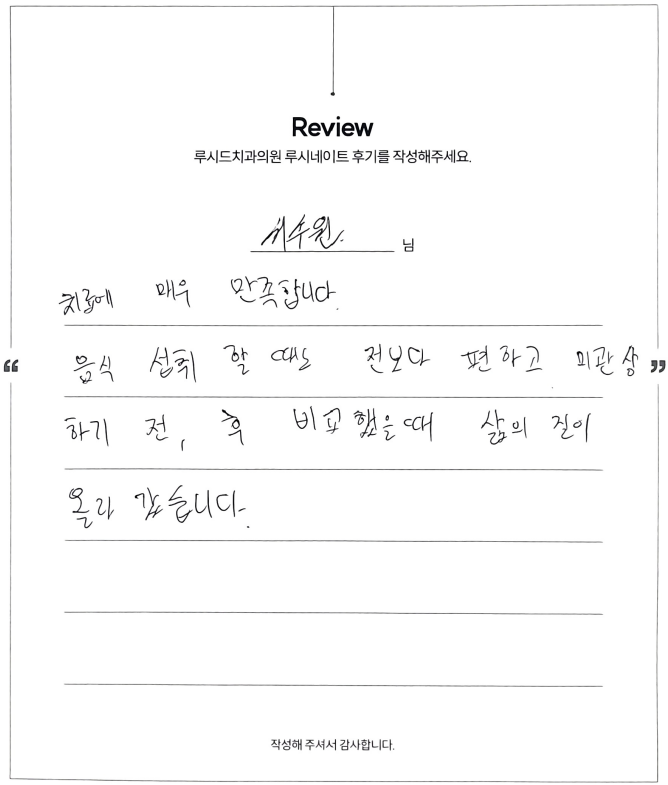 Review
루시드치과의원 루시네이트 후기를 작성해주세요.
서수원 님
치료에 매우 만족합니다.
“ 음식 섭취 할 때도 전보다 편하고 미관상 ”
하기 전, 후 비교했을때 삶의 질이
올라 갔습니다.
작성해 주셔서 감사합니다.